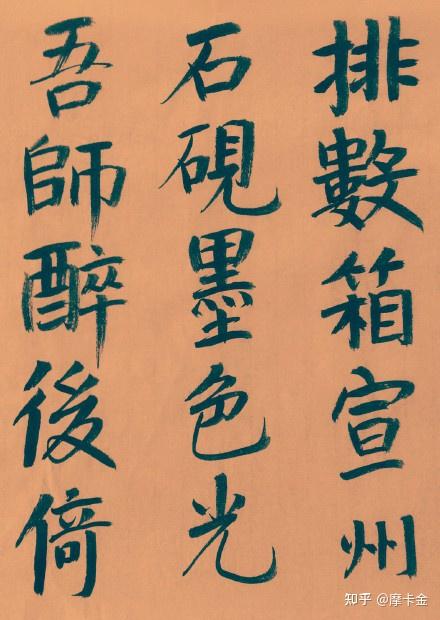 排數箱宣州
石硯墨色光
吾師醉後倚
知乎 @摩卡金